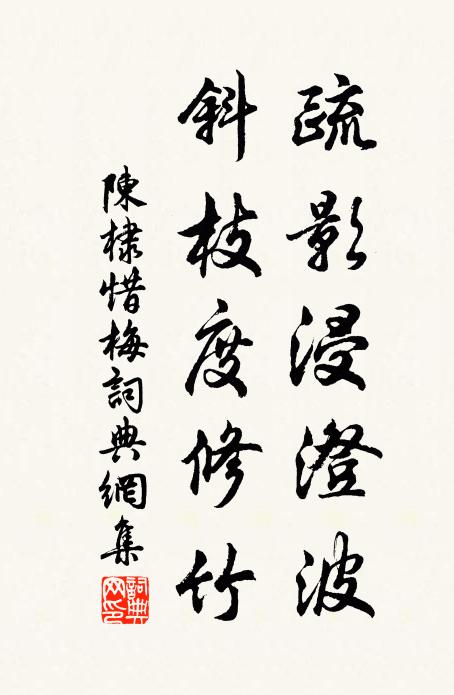 疏影浸澄波
斜枝度修竹
陳棣惜梅詞典網集
詞典網印